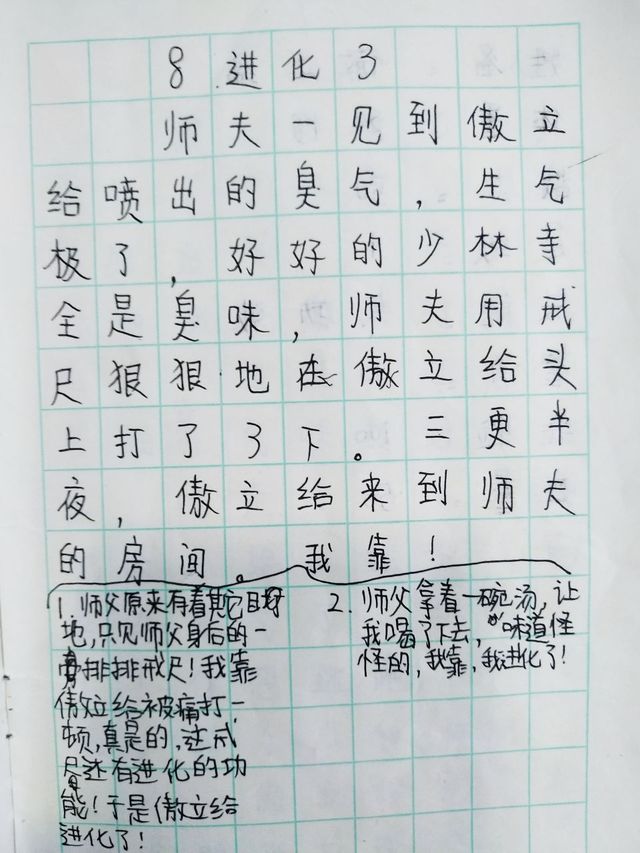 8 进化3
师夫一见到傲立
给喷出的臭气，生气
极了，好好的少林寺
全是臭味，师夫用戒
尺狠狠地在傲立给头
上打了3下。三更半
夜，傲立给来到师夫
的房间。我靠！
1. 师父原来有着其它目
地，只见师父身后的一
排排戒尺！我靠
傲立给被痛打一
顿，真是的，这戒
尺还有进化的功
能！于是傲立给
进化了！
2. 师父拿着一碗汤，让
我喝了下去，味道怪
怪的，我靠，我进化了！